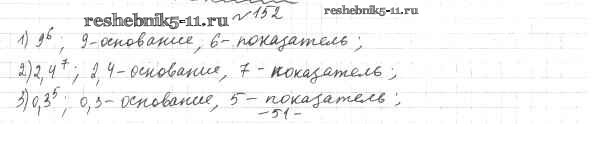 reshebnik5-11.ru №152 reshebnik5-11.ru
1) 9⁶; 9-основание, 6- показатель;
2) 2,4⁷; 2,4-основание, 7 - показатель;
3) 0,3⁵; 0,3-основание, 5 - показатель;
-51-